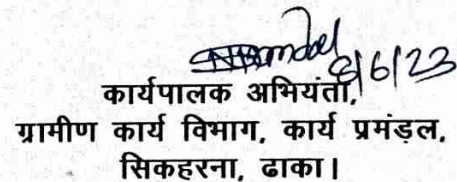 8/6/23
कार्यपालक अभियंता,
ग्रामीण कार्य विभाग, कार्य प्रमंड़ल,
सिकहरना, ढाका।